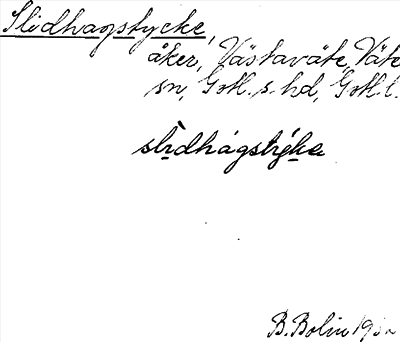 Slidhagstycke,
åker, Västaväte, Väte
sn, Gotl. s. hd, Gotl. l.
slìdhágstýke
B. Bolin